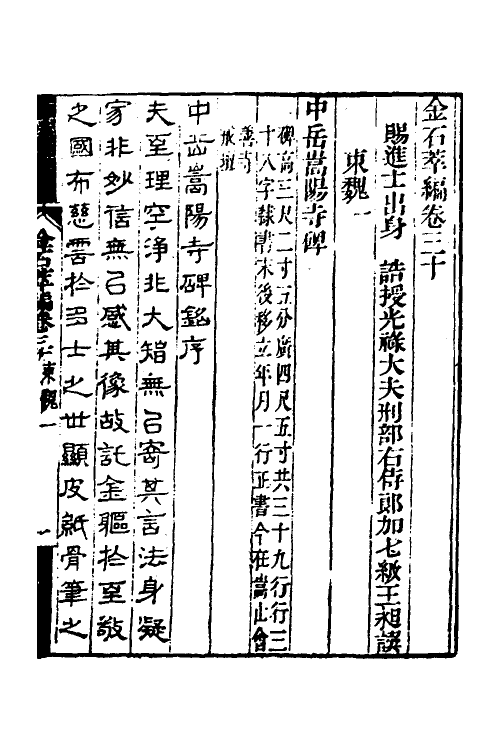 金石萃編卷三十
賜進士出身 誥授光祿大夫刑部右侍郎加七級王昶譔
東魏一
中岳嵩陽寺碑
碑高三尺二寸五分廣四尺五寸共三十九行行三
十八字隸書末後移立年月一行正書今在嵩山會
善寺
戒壇
中岳嵩陽寺碑銘序
夫至理空淨非大智無㠯寄其言法身凝
家非妙信無㠯感其像故託金軀扵至敬
之國布慈雲扵多士之世顯皮紙骨筆之
金石萃編卷三十 東魏一
一